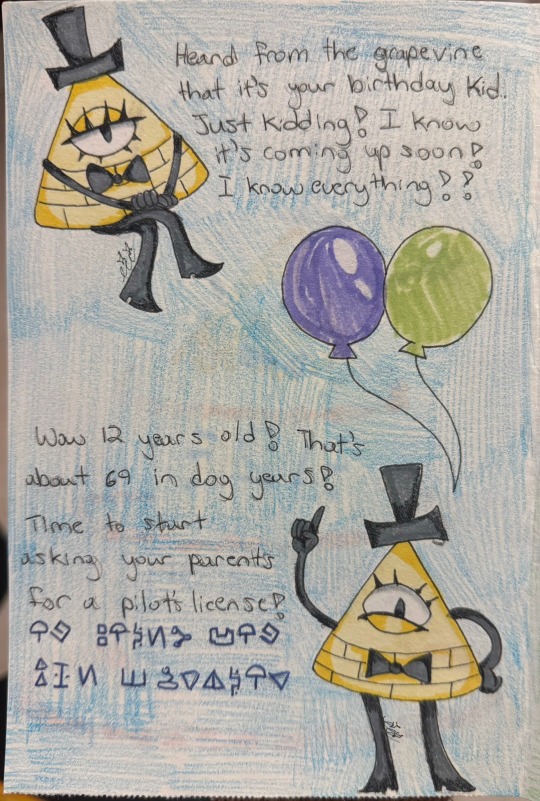 Heard from the grapevine
that it's your birthday Kid.
Just kidding! I know
it's coming up soon!
I know everything!!
Wow 12 years old! That's
about 69 in dog years!
Time to start
asking your parents
for a pilot's license!